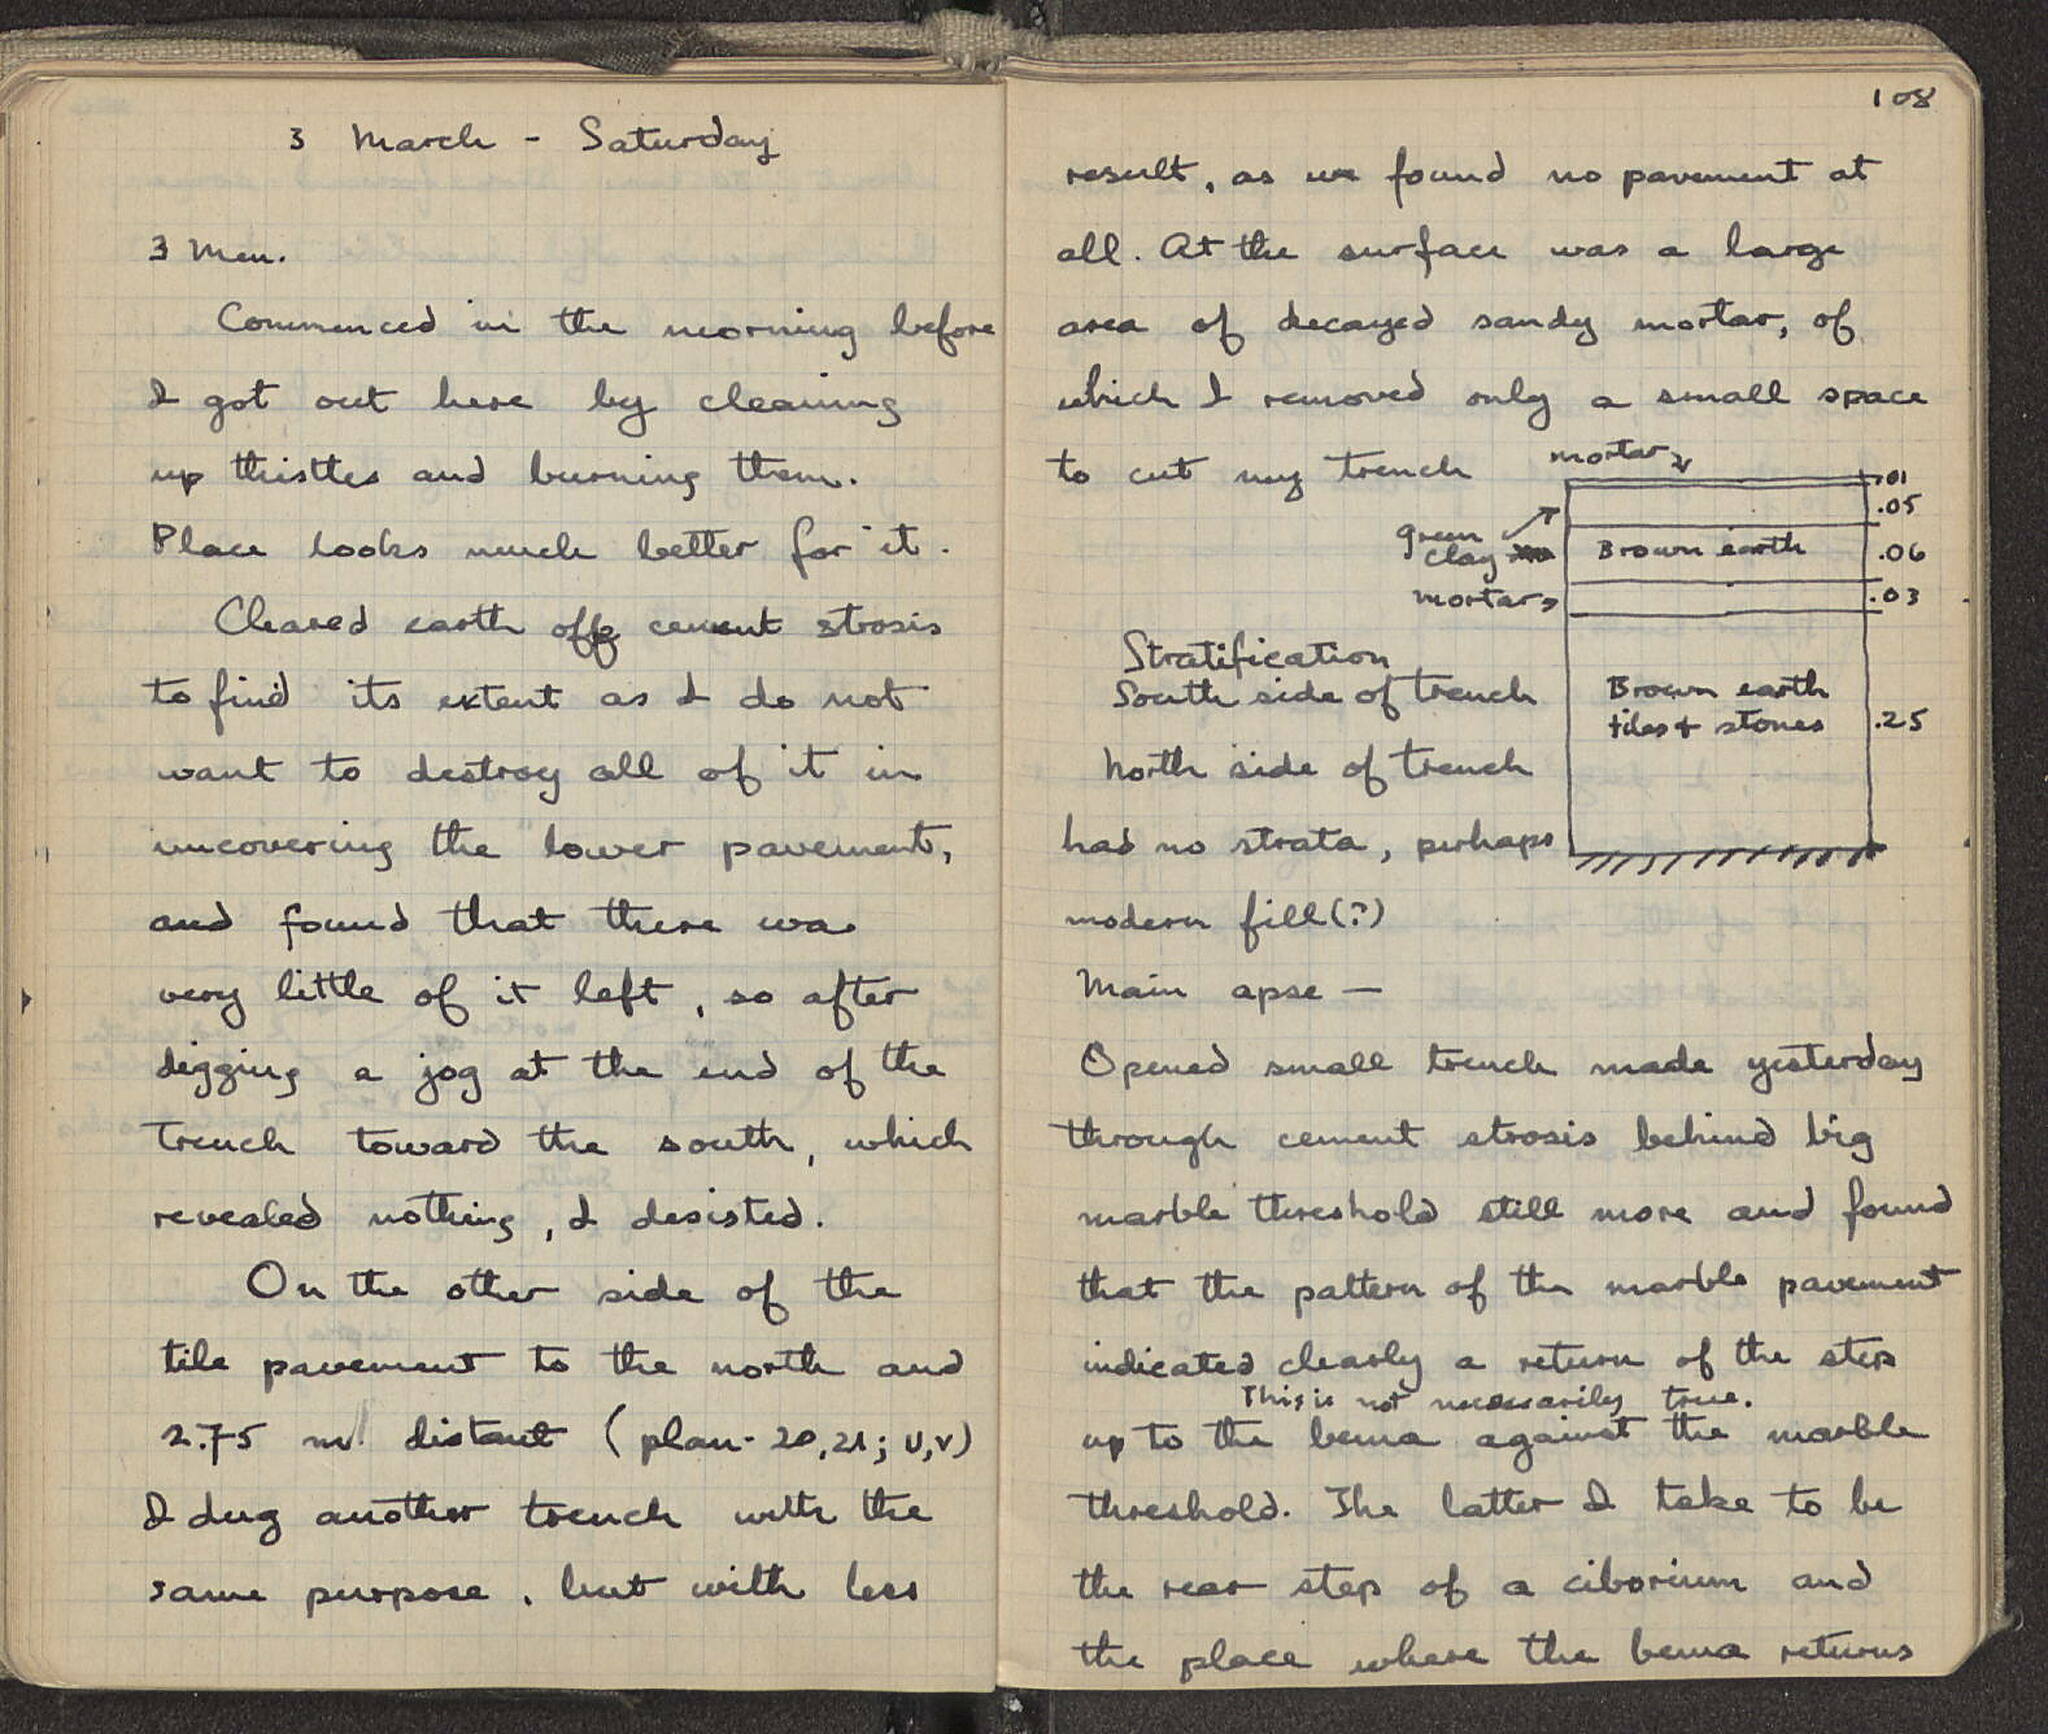 3 March - Saturday
3 Men.
Commenced in the morning before
I got out here by cleaning
up thistles and burning them.
Place looks much better for it.
Cleared earth off cement strosis
to find its extent as I do not
want to destroy all of it in
uncovering the lower pavement,
and found that there was
very little of it left, so after
digging a jog at the end of the
trench toward the south, which
revealed nothing, I desisted.
On the other side of the
tile pavement to the north and
2.75 m. distant (plan - 20,21; U,V)
I dug another trench with the
same purpose, but with less
108
result, as we found no pavement at
all. At the surface was a large
area of decayed sandy mortar, of
which I removed only a small space
to cut my trench
mortar
.01
.05
green
clay
Brown earth
.06
mortar
.03
Stratification
South side of trench
Brown earth
tiles + stones
.25
North side of trench
had no strata, perhaps
modern fill(?)
Main apse —
Opened small trench made yesterday
through cement strosis behind big
marble threshold still more and found
that the pattern of the marble pavement
indicated clearly a return of the step
This is not necessarily true.
up to the bema against the marble
threshold. The latter I take to be
the rear step of a ciborium and
the place where the bema returns